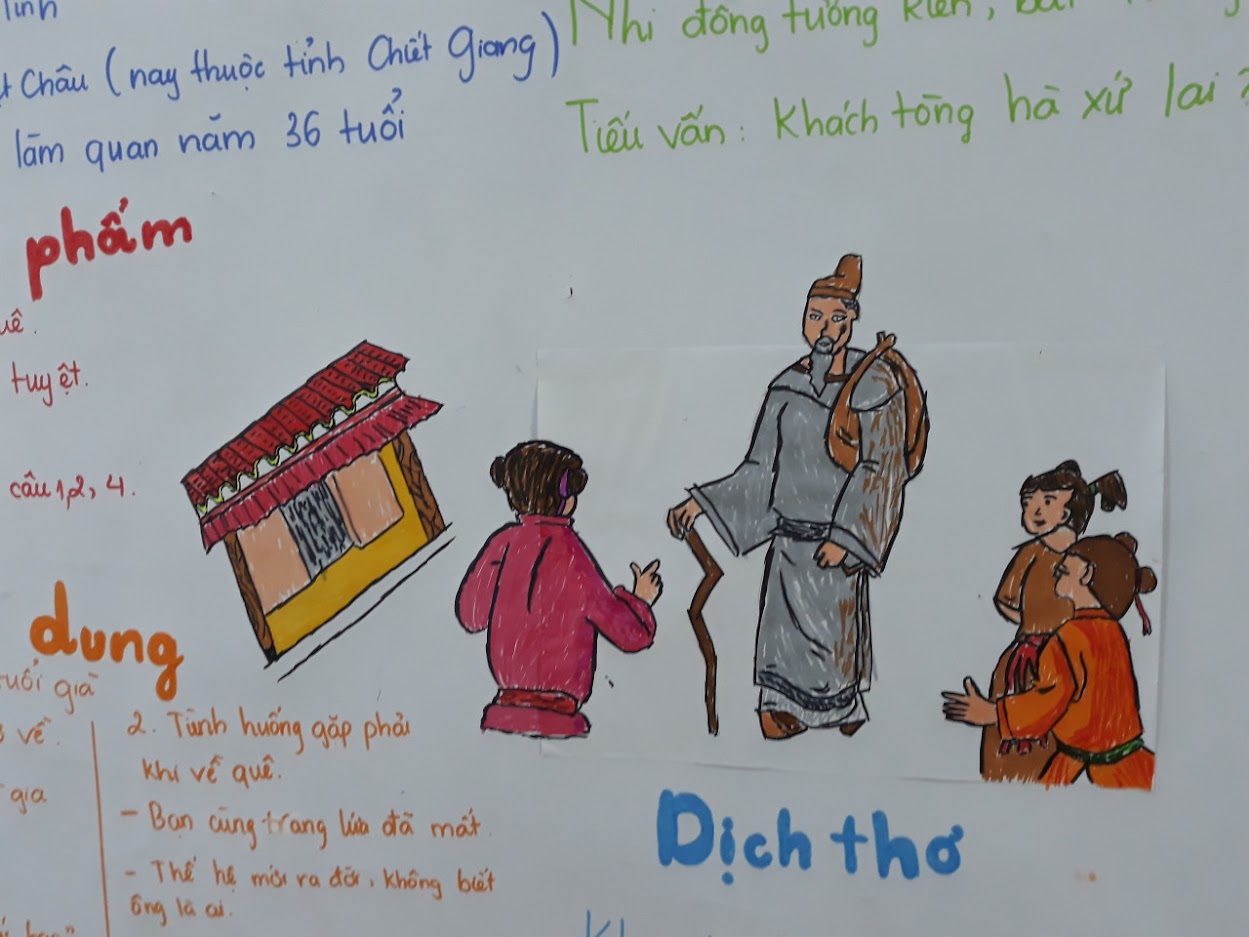 Châu (nay thuộc tỉnh Chiết Giang)
làm quan năm 36 tuổi
Nhi đồng tương kiến,
Tiếu vấn: Khách tòng hà xứ lai?
phẩm
tuyệt.
câu 1,2, 4.
dung
tuổi già
về.
gia
2. Tình huống gặp phải
khi về quê.
- Bạn cùng trang lứa đã mất.
- Thế hệ mới ra đời, không biết
ông là ai.
Dịch thơ